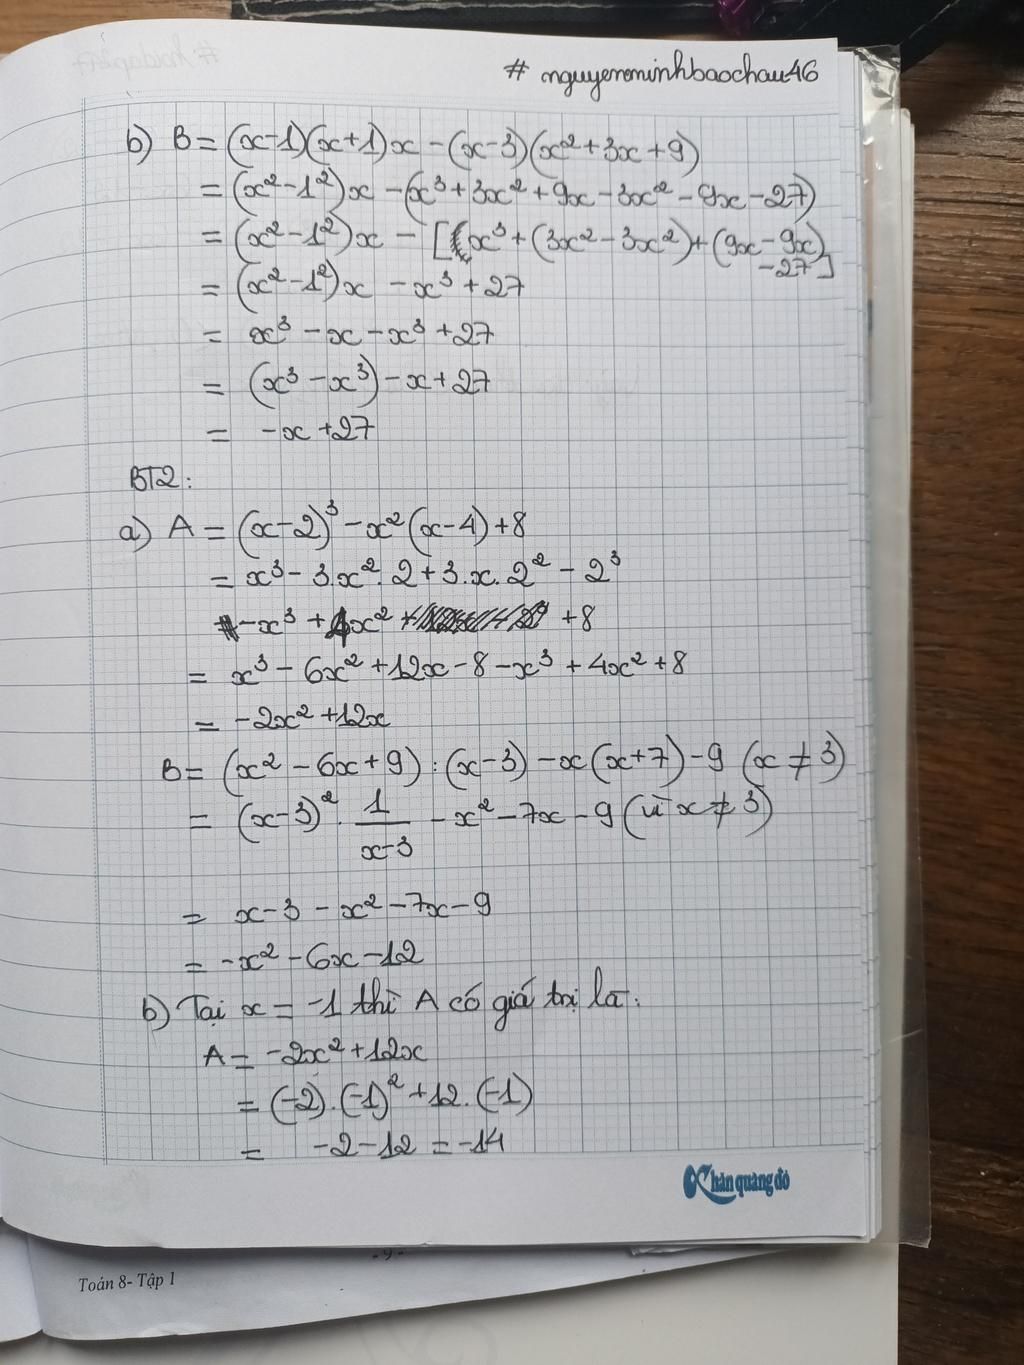 # nguyenminhbaochau46
b) B = (x-1)(x+1)x - (x-3)(x²+3x+9)
= (x²-1²)x - (x³+3x²+9x-3x²-9x-27)
= (x²-1²)x - [x³+(3x²-3x²)+(9x-9x)
-27]
= (x²-1²)x - x³+27
= x³ - x - x³ + 27
= (x³ - x³) - x + 27
= -x + 27
BT2:
a) A = (x-2)³ - x²(x-4) + 8
= x³ - 3.x².2 + 3.x.2² - 2³
- x³ + 4x² + 8
= x³ - 6x² + 12x - 8 - x³ + 4x² + 8
= -2x² + 12x
B = (x² - 6x + 9) : (x-3) - x(x+7) - 9 (x ≠ 3)
= (x-3)² . 1/(x-3) - x² - 7x - 9 (vì x ≠ 3)
= x-3 - x² - 7x - 9
= -x² - 6x - 12
b) Tại x = -1 thì A có giá trị là:
A = -2x² + 12x
= (-2).(-1)² + 12.(-1)
= -2 - 12 = -14
Khăn quàng đỏ
- 9 -
Toán 8- Tập 1